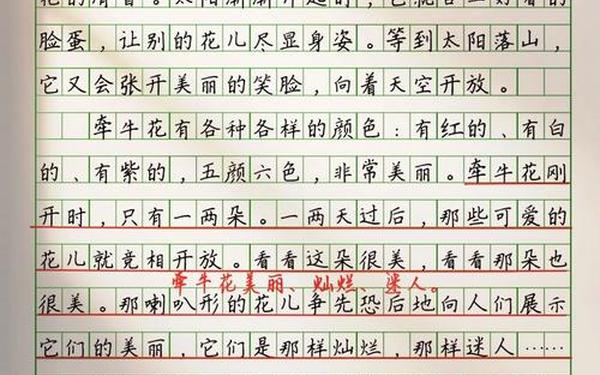 脸蛋，让别的花儿尽显身姿。等到太阳落山，
它又会张开美丽的笑脸，向着天空开放。
牵牛花有各种各样的颜色：有红的、有白
的、有紫的，五颜六色，非常美丽。牵牛花刚
开时，只有一两朵。一两天过后，那些可爱的
花儿就竞相开放。看看这朵很美，看看那朵也
牵牛花美丽、灿烂、迷人。
很美。那喇叭形的花儿争先恐后地向人们展示
它们的美丽，它们是那样灿烂，那样迷人……